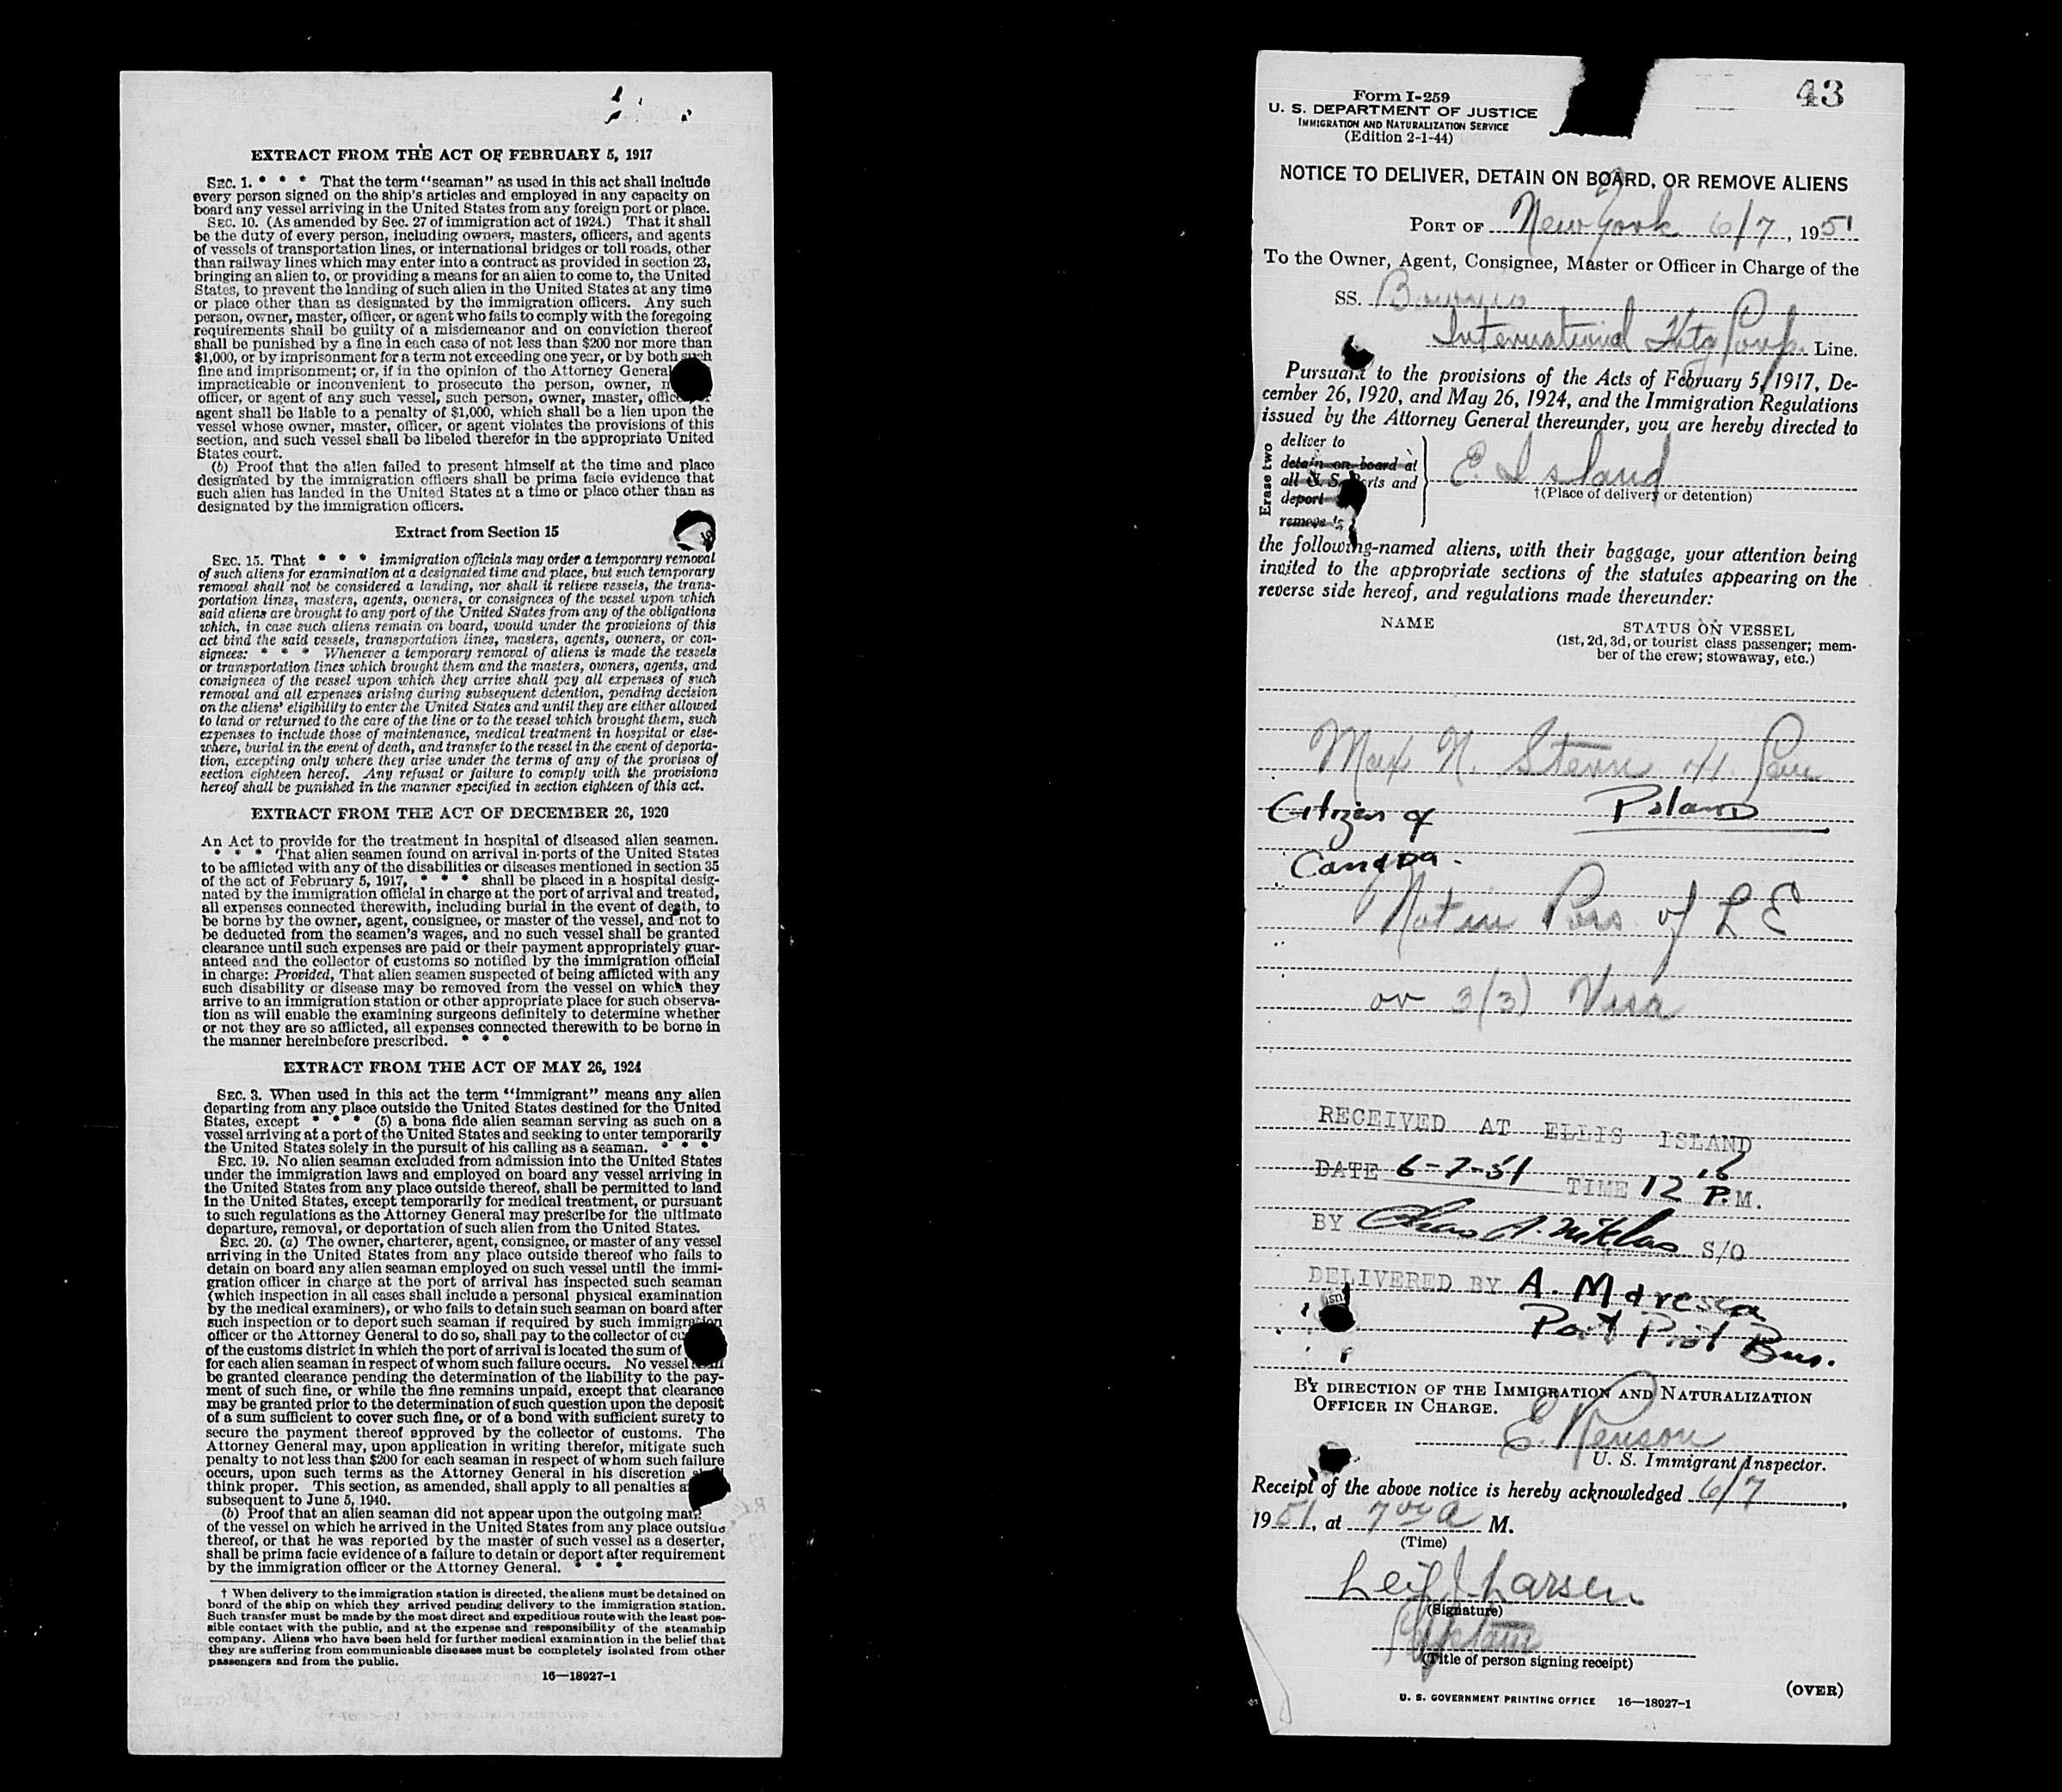 EXTRACT FROM THE ACT OF FEBRUARY 5, 1917
SEC. 1. * * * That the term "seaman" as used in this act shall include
every person signed on the ship's articles and employed in any capacity on
board any vessel arriving in the United States from any foreign port or place.
SEC. 10. (As amended by Sec. 27 of immigration act of 1924.) That it shall
be the duty of every person, including owners, masters, officers, and agents
of vessels of transportation lines, or international bridges or toll roads, other
than railway lines which may enter into a contract as provided in section 23,
bringing an alien to, or providing a means for an alien to come to, the United
States, to prevent the landing of such alien in the United States at any time
or place other than as designated by the immigration officers. Any such
person, owner, master, officer, or agent who fails to comply with the foregoing
requirements shall be guilty of a misdemeanor and on conviction thereof
shall be punished by a fine in each case of not less than $200 nor more than
$1,000, or by imprisonment for a term not exceeding one year, or by both such
fine and imprisonment; or, if in the opinion of the Attorney General
impracticable or inconvenient to prosecute the person, owner,
officer, or agent of any such vessel, such person, owner, master,
agent shall be liable to a penalty of $1,000, which shall be a lien upon the
vessel whose owner, master, officer, or agent violates the provisions of this
section, and such vessel shall be libeled therefor in the appropriate United
States court.
(b) Proof that the alien failed to present himself at the time and place
designated by the immigration officers shall be prima facie evidence that
such alien has landed in the United States at a time or place other than as
designated by the immigration officers.
Extract from Section 15
SEC. 15. That * * * immigration officials may order a temporary removal
of such aliens for examination at a designated time and place, but such temporary
removal shall not be considered a landing, nor shall it relieve vessels, the trans-
portation lines, masters, agents, owners, or consignees of the vessel upon which
said aliens are brought to any port of the United States from any of the obligations
which, in case such aliens remain on board, would under the provisions of this
act bind the said vessels, transportation lines, masters, agents, owners, or con-
signees: * * * Whenever a temporary removal of aliens is made the vessels
or transportation lines which brought them and the masters, owners, agents, and
consignees of the vessel upon which they arrive shall pay all expenses of such
removal and all expenses arising during subsequent detention, pending decision
on the aliens' eligibility to enter the United States and until they are either allowed
to land or returned to the care of the line or to the vessel which brought them, such
expenses to include those of maintenance, medical treatment in hospital or else-
where, burial in the event of death, and transfer to the vessel in the event of deporta-
tion, excepting only where they arise under the terms of any of the provisos of
section eighteen hereof. Any refusal or failure to comply with the provisions
hereof shall be punished in the manner specified in section eighteen of this act.
EXTRACT FROM THE ACT OF DECEMBER 26, 1920
An Act to provide for the treatment in hospital of diseased alien seamen.
* * * That alien seamen found on arrival in ports of the United States
to be afflicted with any of the disabilities or diseases mentioned in section 35
of the act of February 5, 1917, * * * shall be placed in a hospital desig-
nated by the immigration official in charge at the port of arrival and treated,
all expenses connected therewith, including burial in the event of death, to
be borne by the owner, agent, consignee, or master of the vessel, and not to
be deducted from the seamen's wages, and no such vessel shall be granted
clearance until such expenses are paid or their payment appropriately guar-
anteed and the collector of customs so notified by the immigration official
in charge: Provided, That alien seamen suspected of being afflicted with any
such disability or disease may be removed from the vessel on which they
arrive to an immigration station or other appropriate place for such observa-
tion as will enable the examining surgeons definitely to determine whether
or not they are so afflicted, all expenses connected therewith to be borne in
the manner hereinbefore prescribed. * * *
EXTRACT FROM THE ACT OF MAY 26, 1924
SEC. 3. When used in this act the term "immigrant" means any alien
departing from any place outside the United States destined for the United
States, except * * * (5) a bona fide alien seaman serving as such on a
vessel arriving at a port of the United States and seeking to enter temporarily
the United States solely in the pursuit of his calling as a seaman. * * *
SEC. 19. No alien seaman excluded from admission into the United States
under the immigration laws and employed on board any vessel arriving in
the United States from any place outside thereof, shall be permitted to land
in the United States, except temporarily for medical treatment, or pursuant
to such regulations as the Attorney General may prescribe for the ultimate
departure, removal, or deportation of such alien from the United States.
SEC. 20. (a) The owner, charterer, agent, consignee, or master of any vessel
arriving in the United States from any place outside thereof who fails to
detain on board any alien seaman employed on such vessel until the immi-
gration officer in charge at the port of arrival has inspected such seaman
(which inspection in all cases shall include a personal physical examination
by the medical examiners), or who fails to detain such seaman on board after
such inspection or to deport such seaman if required by such immigration
officer or the Attorney General to do so, shall pay to the collector of
of the customs district in which the port of arrival is located the sum of
for each alien seaman in respect of whom such failure occurs. No vessel
be granted clearance pending the determination of the liability to the pay-
ment of such fine, or while the fine remains unpaid, except that clearance
may be granted prior to the determination of such question upon the deposit
of a sum sufficient to cover such fine, or of a bond with sufficient surety to
secure the payment thereof approved by the collector of customs. The
Attorney General may, upon application in writing therefor, mitigate such
penalty to not less than $200 for each seaman in respect of whom such failure
occurs, upon such terms as the Attorney General in his discretion
think proper. This section, as amended, shall apply to all penalties
subsequent to June 5, 1940.
(b) Proof that an alien seaman did not appear upon the outgoing
of the vessel on which he arrived in the United States from any place outside
thereof, or that he was reported by the master of such vessel as a deserter,
shall be prima facie evidence of a failure to detain or deport after requirement
by the immigration officer or the Attorney General. * * *
† When delivery to the immigration station is directed, the aliens must be detained on
board of the ship on which they arrived pending delivery to the immigration station.
Such transfer must be made by the most direct and expeditious route with the least pos-
sible contact with the public, and at the expense and responsibility of the steamship
company. Aliens who have been held for further medical examination in the belief that
they are suffering from communicable diseases must be completely isolated from other
passengers and from the public.
16—18927-1
43
Form I-259
U. S. DEPARTMENT OF JUSTICE
IMMIGRATION AND NATURALIZATION SERVICE
(Edition 2-1-44)
NOTICE TO DELIVER, DETAIN ON BOARD, OR REMOVE ALIENS
PORT OF New York 6/7, 1951
To the Owner, Agent, Consignee, Master or Officer in Charge of the
SS.
International Line.
Pursuant to the provisions of the Acts of February 5, 1917, De-
cember 26, 1920, and May 26, 1924, and the Immigration Regulations
issued by the Attorney General thereunder, you are hereby directed to
Erase two
deliver to
detain on board at
all U. S. Ports and
deport
remove to
E. Island
†(Place of delivery or detention)
the following-named aliens, with their baggage, your attention being
invited to the appropriate sections of the statutes appearing on the
reverse side hereof, and regulations made thereunder:
NAME
STATUS ON VESSEL
(1st, 2d, 3d, or tourist class passenger; mem-
ber of the crew; stowaway, etc.)
Max N. Stern 41
Citizen of Poland
Canada.
Not in Poss of L E
or 3(3) Visa
RECEIVED AT ELLIS ISLAND
DATE 6-7-51 TIME 12 P.M.
BY Chas A. Niklas S/O
DELIVERED BY A. Maresca
Port Prot Bus.
BY DIRECTION OF THE IMMIGRATION AND NATURALIZATION
OFFICER IN CHARGE.
E. Kenson
U. S. Immigrant Inspector.
Receipt of the above notice is hereby acknowledged 6/7,
1951, at 7 00 a M.
(Time)
Leif J. Larsen
(Signature)
Captain
(Title of person signing receipt)
(OVER)
U. S. GOVERNMENT PRINTING OFFICE 16—18927-1